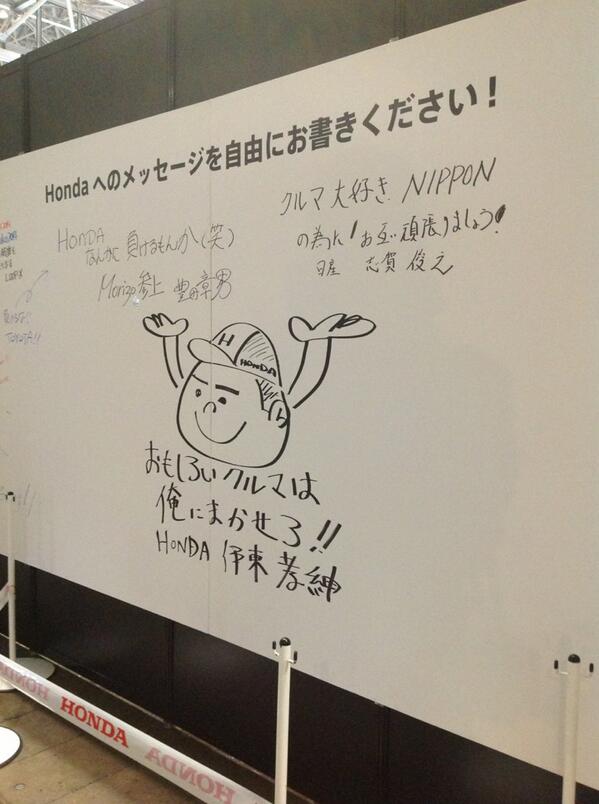 Hondaへのメッセージを自由にお書きください！
HONDA
なんかに負けるもんか(笑)
Morizo参上 豊田章男
クルマ大好き NIPPON
の為に！お互い頑張りましょう！
日産 志賀 俊之
負けるな!
TOYOTA!!
H
HONDA
おもしろいクルマは
俺にまかせろ!!
HONDA 伊東 孝紳
HONDA
HONDA
HONDA